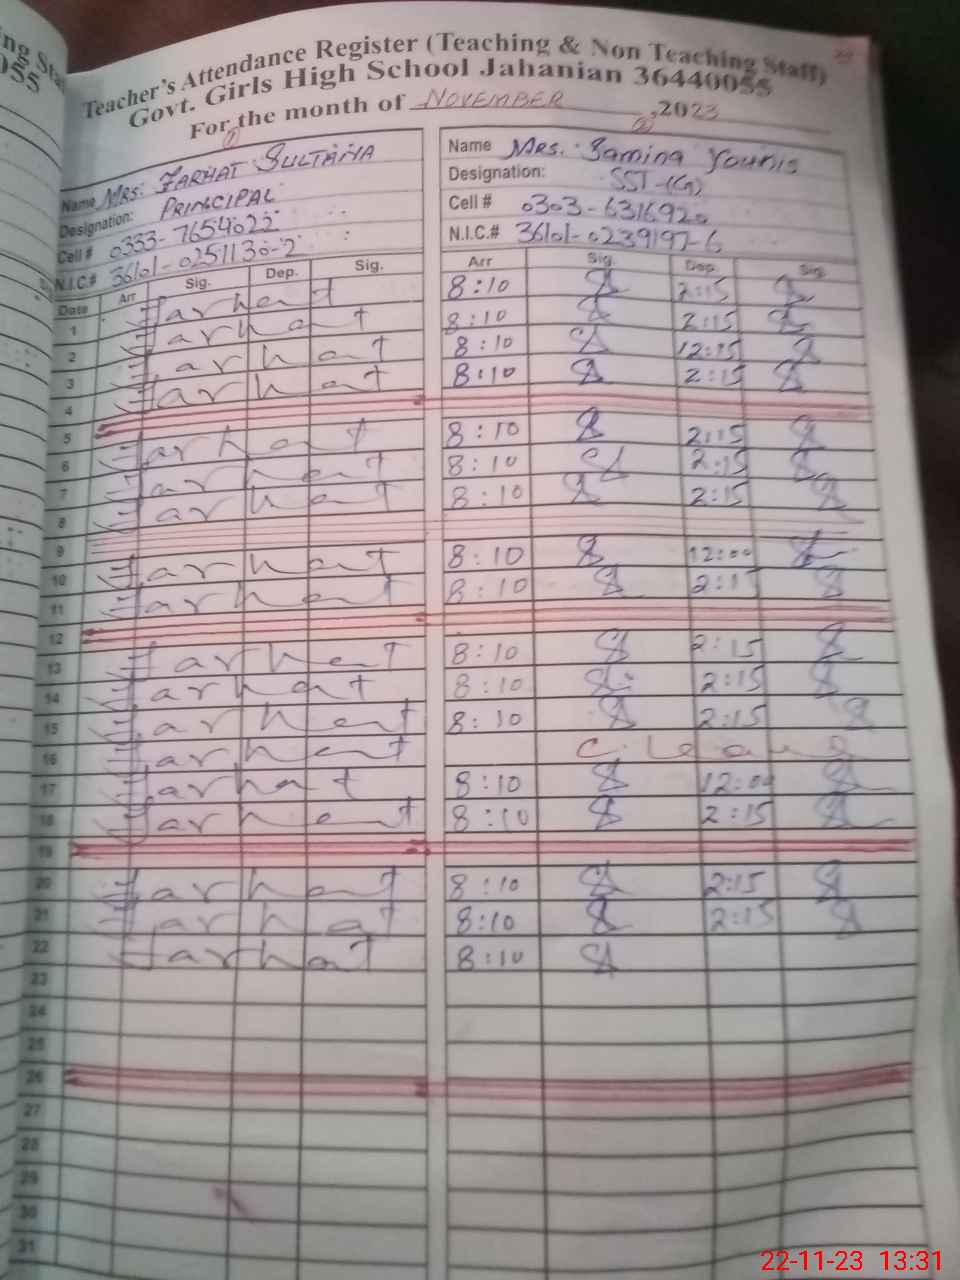 ng Sta
055
Teacher's Attendance Register (Teaching & Non Teaching Staff)
Govt. Girls High School Jahanian 36440055
For the month of NOVEMBER, 2023
(1)
(2)
Name MRS. FARHAT SULTANA
Designation: PRINCIPAL
Cell # 0333-7654022
N.I.C.# 36101-0251130-2
Name Mrs. Samina Younis
Designation: SST-(G)
Cell # 0303-6316920
N.I.C.# 36101-0239197-6
Date Arr Sig. Dep. Sig. Arr Sig. Dep. Sig.
1 Farhat 8:10 2:15
2 Farhat 8:10 2:15
3 Farhat 8:10 12:15
4 Farhat 8:10 2:15
5
6 Farhat 8:10 2:15
7 Farhat 8:10 2:15
8 Farhat 8:10 2:15
9
10 Farhat 8:10 12:00
11 Farhat 8:10 2:15
12
13 Farhat 8:10 2:15
14 Farhat 8:10 2:15
15 Farhat 8:10 2:15
16 Farhat C. Leave
17 Farhat 8:10 12:00
18 Farhat 8:10 2:15
19
20 Farhat 8:10 2:15
21 Farhat 8:10 2:15
22 Farhat 8:10
23
24
25
26
27
28
29
30
31
22-11-23 13:31